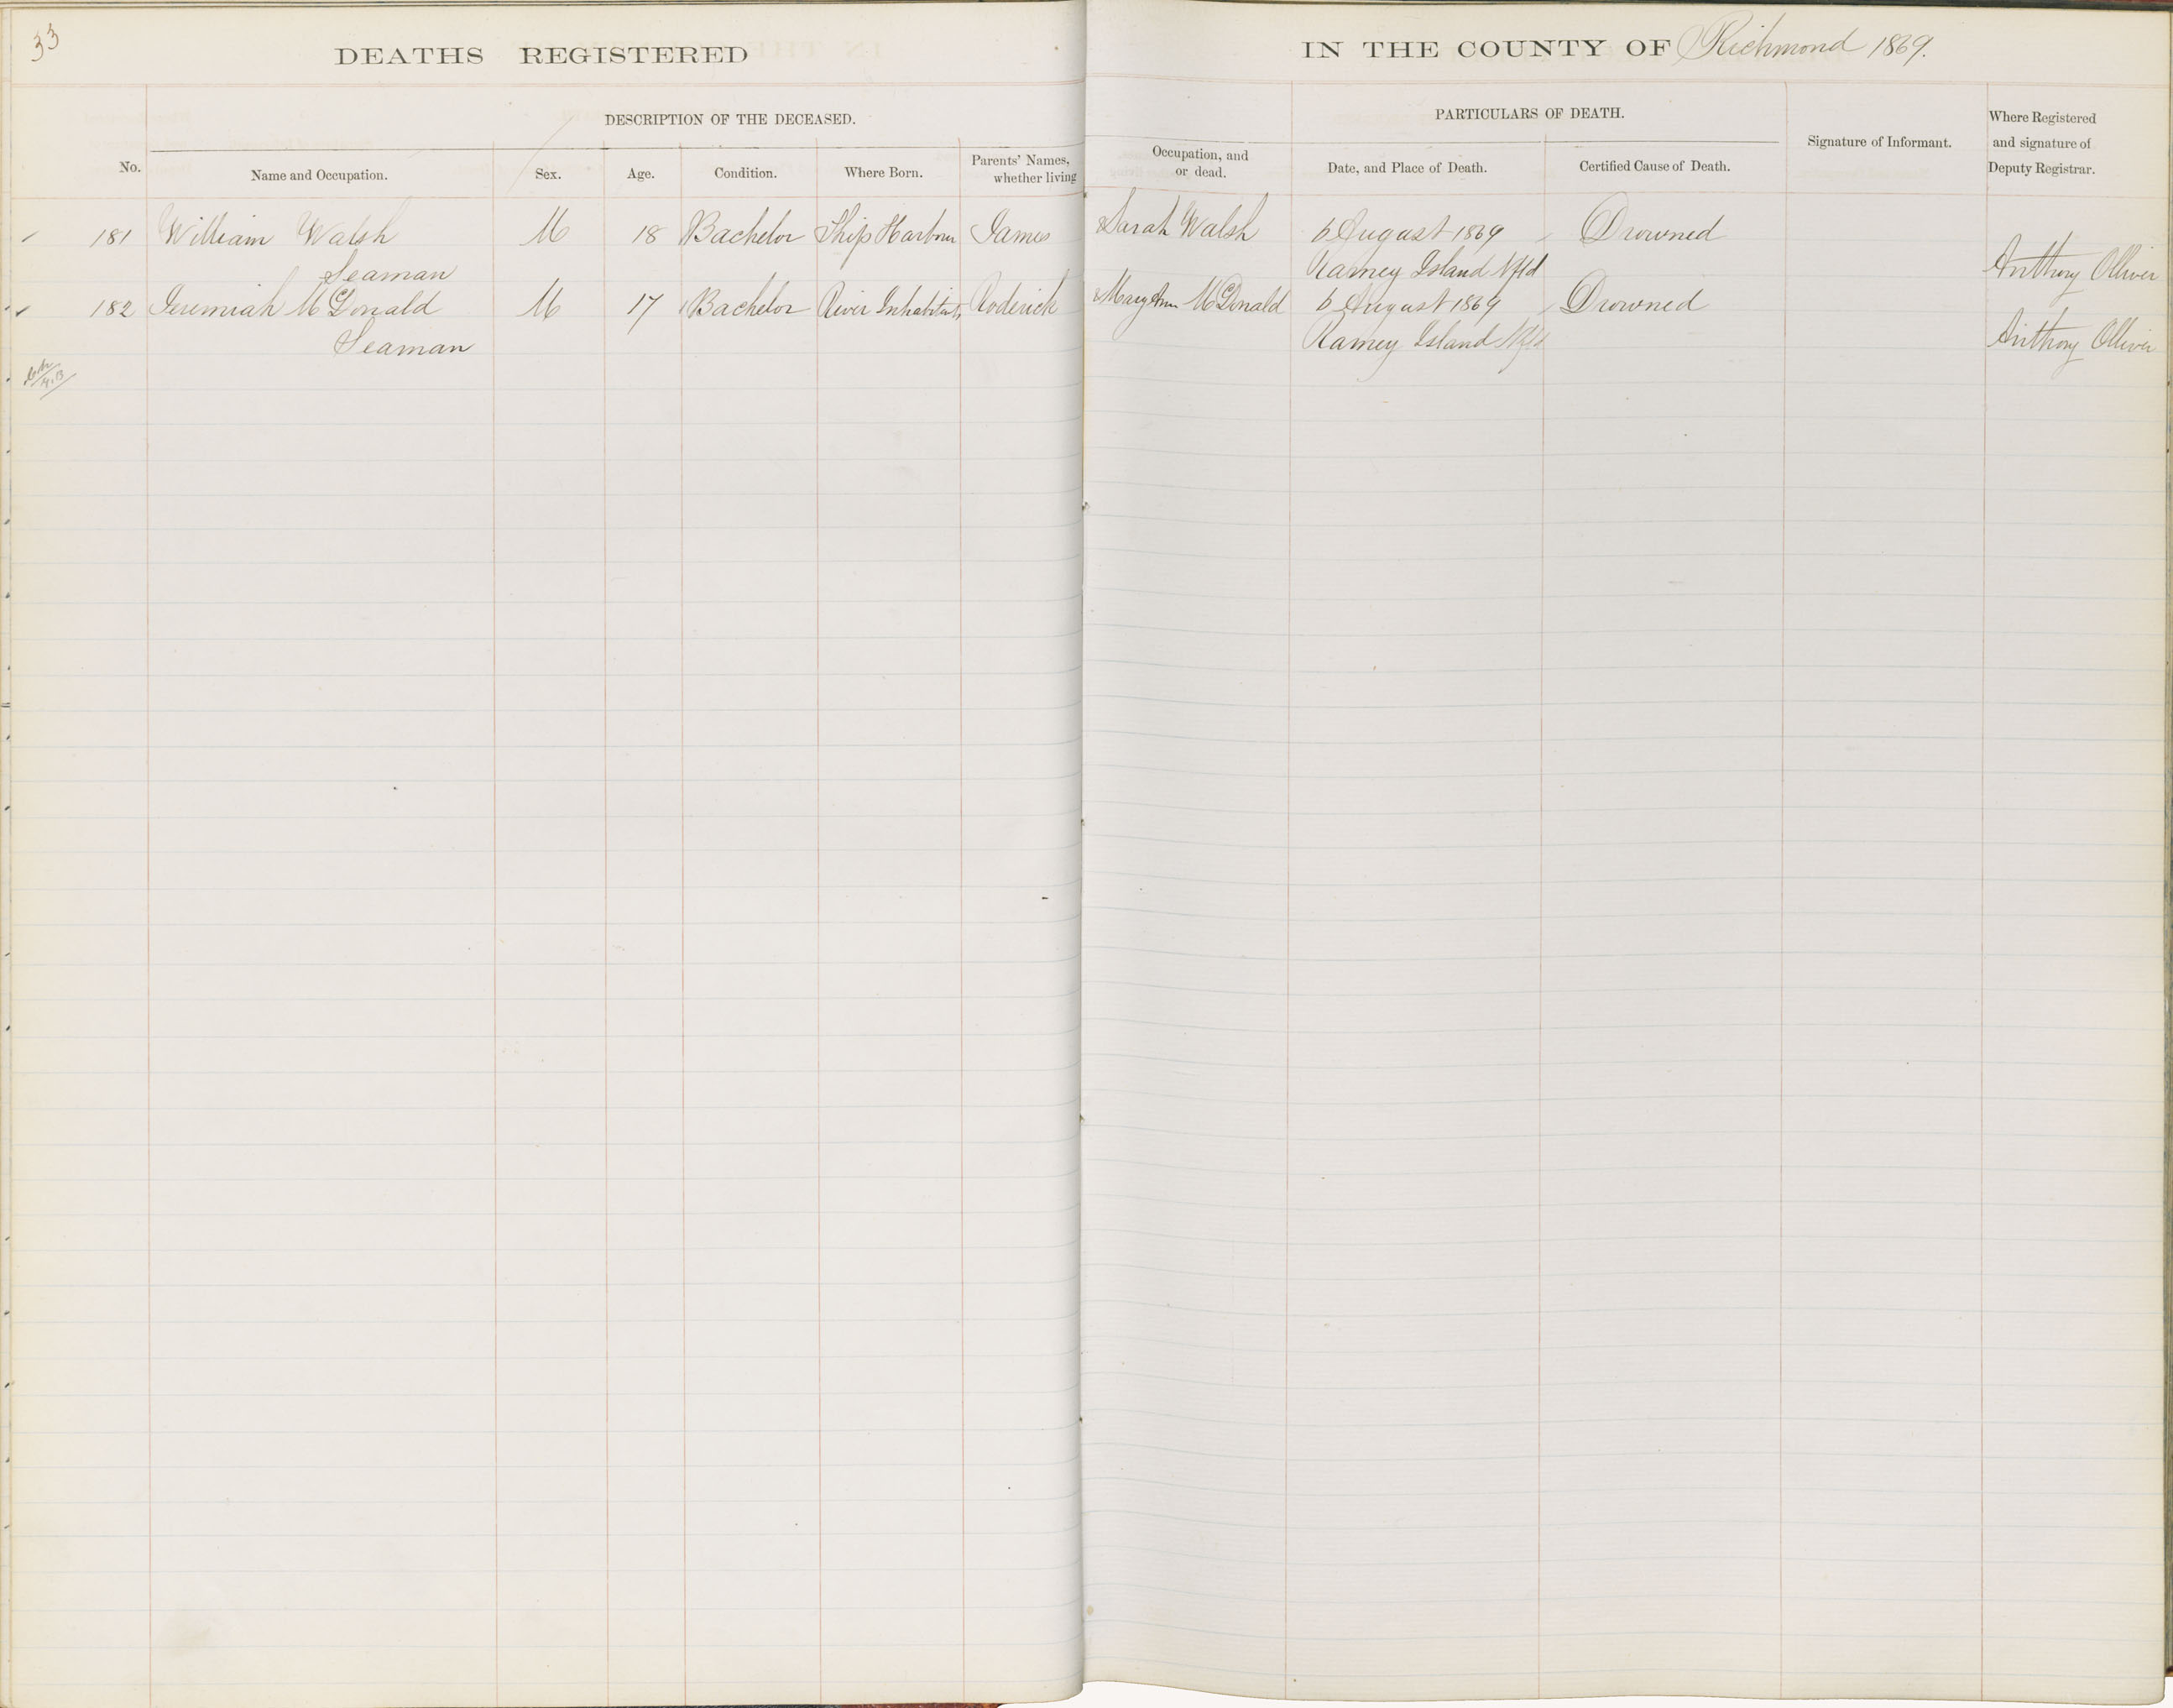 33
DEATHS REGISTERED IN THE COUNTY OF Richmond 1869.
DESCRIPTION OF THE DECEASED. PARTICULARS OF DEATH.
No. Name and Occupation. Sex. Age. Condition. Where Born. Parents' Names, Occupation, and whether living or dead. Date, and Place of Death. Certified Cause of Death. Signature of Informant. Where Registered and signature of Deputy Registrar.
181 William Walsh M 18 Bachelor Ship Harbour James Sarah Walsh 6 August 1869 Drowned
Seaman Ramey Island Nfld Anthony Olliver
182 Jeremiah McDonald M 17 Bachelor River Inhabitants Roderick Mary Ann McDonald 6 August 1869 Drowned
Seaman Ramey Island Nfld Anthony Olliver